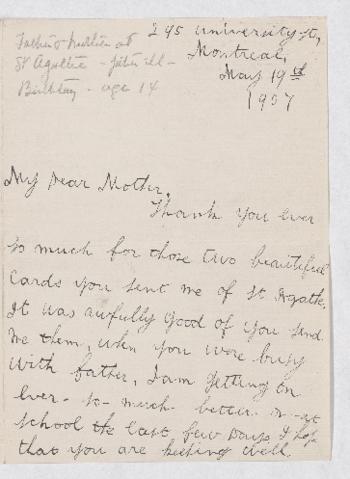 295 University St,
Montreal,
May 19th
1907
Father & Mother at
St Agathe - father ill -
Birthday - age 14
My Dear Mother,
Thank you ever
so much for those two beautiful
Cards you sent me of St Agathe.
It was awfully good of you send
me them, when you were busy
With father, I am getting on
ever-so-much better at
school the last few Days, I hope
that you are keeping well.